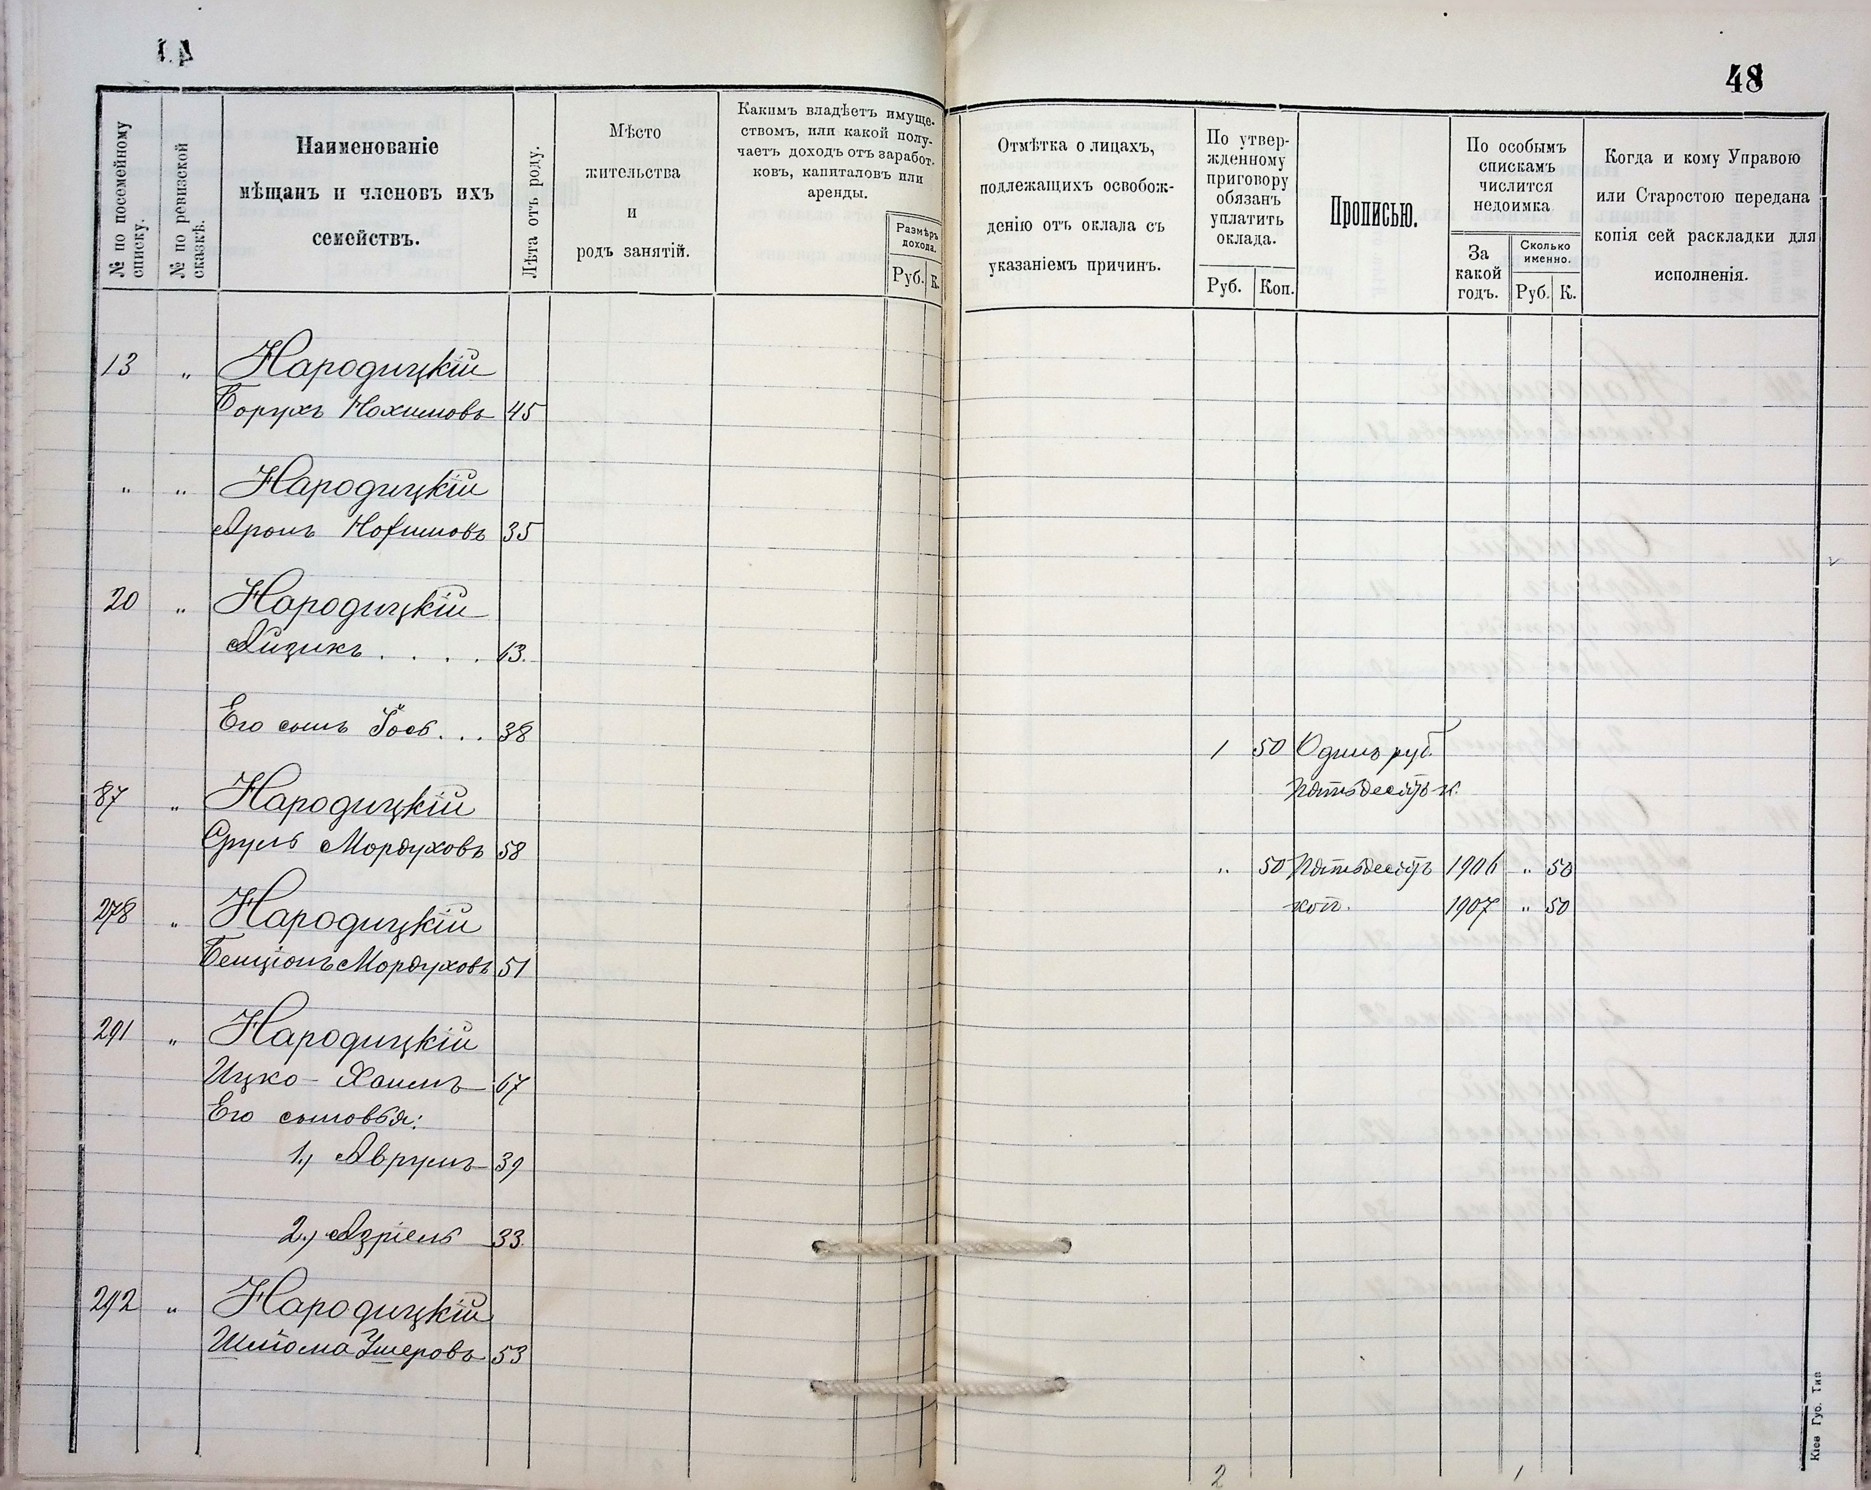 48
№ по посемейному списку.
№ по ревизской сказкѣ.
Наименованіе
мѣщанъ и членовъ ихъ
семействъ.
Лѣта отъ роду.
Мѣсто
жительства
и
родъ занятій.
Какимъ владѣетъ имуще-
ствомъ, или какой полу-
чаетъ доходъ отъ заработ-
ковъ, капиталовъ или
аренды.
Размѣръ
дохода.
Руб. К.
Отмѣтка о лицахъ,
подлежащихъ освобож-
денію отъ оклада съ
указаніемъ причинъ.
По утвер-
жденному
приговору
обязанъ
уплатить
оклада.
Руб. Коп.
Прописью.
По особымъ
спискамъ
числится
недоимка
За
какой
годъ.
Сколько
именно.
Руб. К.
Когда и кому Управою
или Старостою передана
копія сей раскладки для
исполненія.
13 „ Народицкій
Борухъ Нохимовъ 45
„ „ Народицкій
Аронъ Нохимовъ 35
20 „ Народицкій
Айзикъ . . . . 63.
Его сынъ Іосъ . . . 38 1 50 Одинъ руб.
пятьдесятъ к.
87 „ Народицкій
Сруль Мордуховъ 58 „ 50 Пятьдесятъ 1906 „ 50
коп. 1907 „ 50
278 „ Народицкій
Бенціонъ Мордуховъ 51
291 „ Народицкій
Ицко-Хаимъ 67
Его сыновья:
1.) Аврумъ 39
2.) Азріель 33.
292 „ Народицкій
Шлйома Ушеровъ 53
2 1
Кіев Губ. Тип